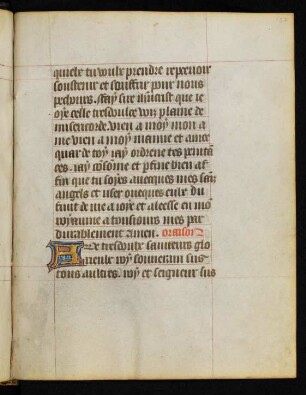 quiele tu voulz prendre recepuoir
soustenir et souffrir pour nous
pecheurs. ffay sire
oye celle tresdoulce voix plaine de
misericorde. vien a moy mon a
me vien a moy mamie et amee
quar de toy iay
ces. iay
fin que tu soyes auecques mes sains
angels et user ouques eulx du
fruit de vie a ioye et a leesse en mo
royaume a tousiours mes par
durablement amen. oraison
tresdoulz sauueurs glo
rieulx roy souuerain sus
tous aultres. roy et seigneur sus